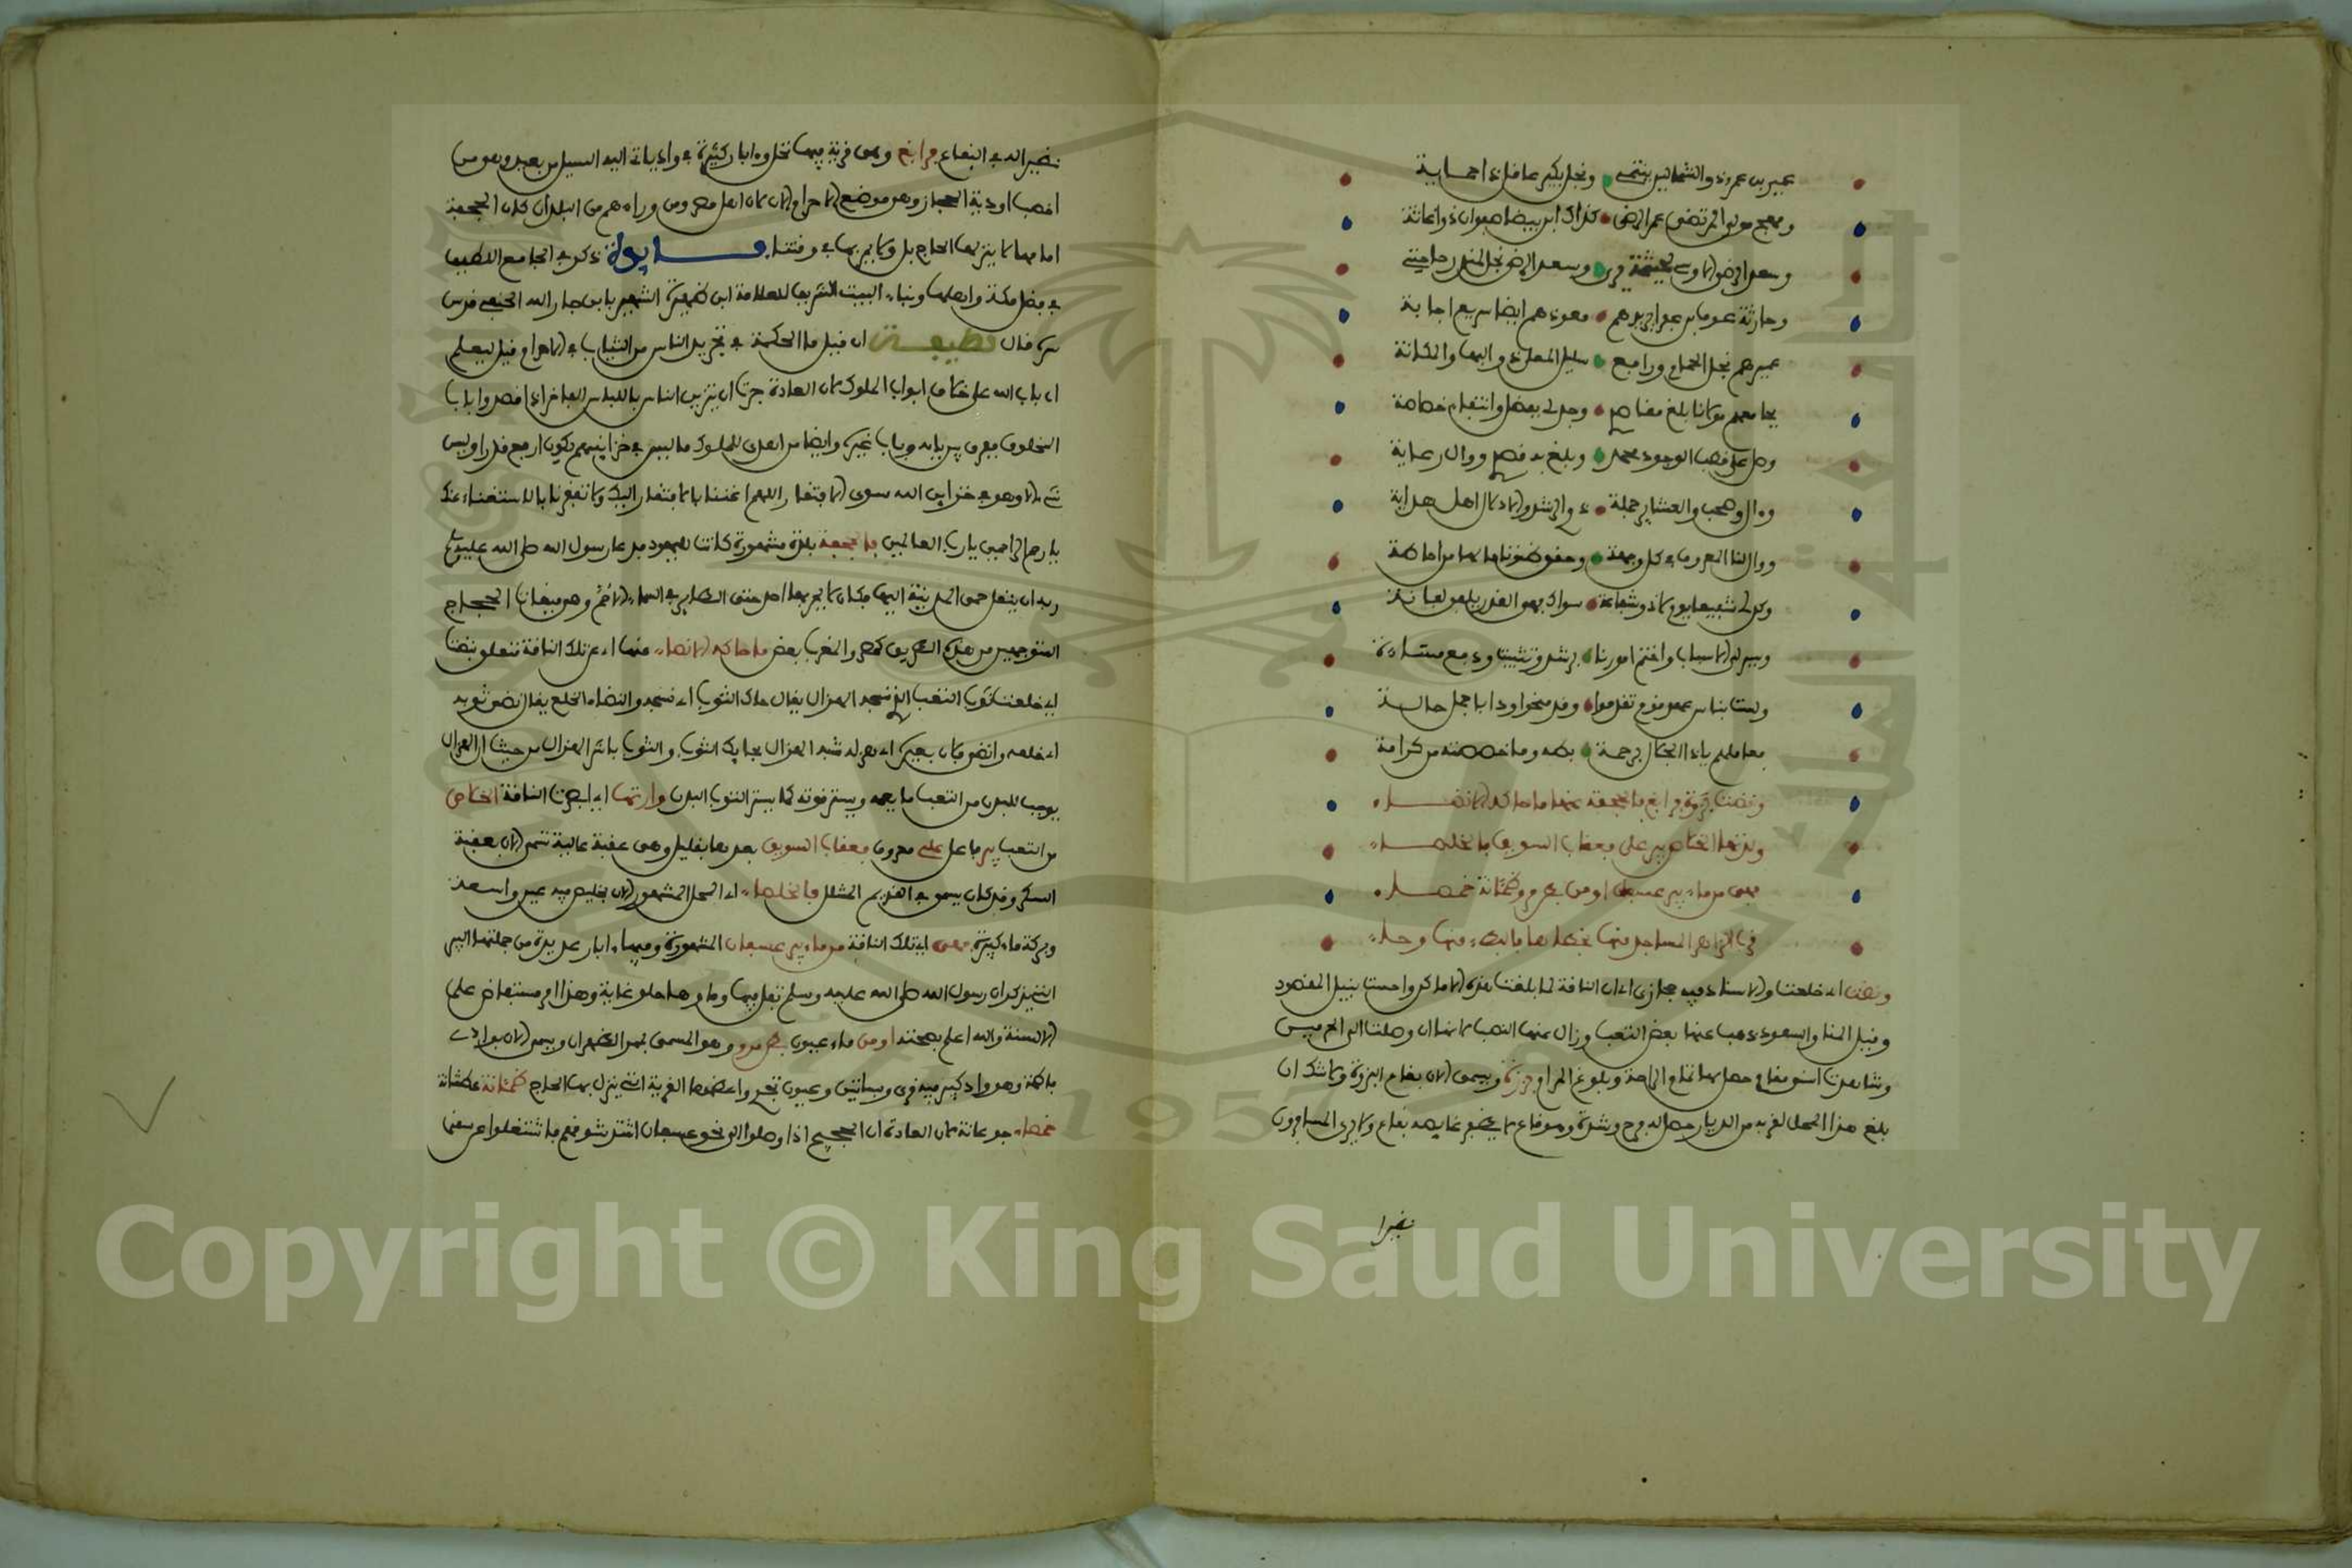 عمير بن عمرو ذو الشمالين ينتمي ونجل بكير عاقل ذا احساية
ومهجع مولى المرتضى عمر الرضى كذاك ابن بيضا صفوان ذو امانة
وسعد الرضى الاوسي وسعد الرضى نجل
وحارثة عوف بن عفرا جميعهم معوذهم ايضا سريع اجابة
عميرهم نجل الحمام ورافع سليل المعلى ذو البها والمكانة
بجاههم مولانا بلغ مقاصدي وجد لي بفضل وانتقام
وصل على قطب الوجود محمد وبلغ به قصدي ووال رعاية
وءال وصحب والعشاير جملة ذوي الرشد والامال اهل هداية
ووال لنا المعروف في كل وجهة وحقق
وكن لي شفيعا يوم لا ذو شفاعة سواك
ويسر لي الاسباب واختم امورنا برشد وتثبيت ودفع مساءة
ولست بناس عهد قوم تقدموا وقد منحوا ودا باجمل حالة
فعاملهم ياذا الجلال برحمة بطه وما خصصته من كرامة
ونضت بزوة فرابغ فالجحفة عنها ما حاكه الانضاء
وارتها الخلاص بير علي فعقاب السويق فالخلصاء
فهي من ماء بير عسفان او من بطن مر وظمئانة خمصاء
قرب الزاهر المساجد منها بخطاها فالبطء منها وحاء
ونضت اي خلعت والاسناد فيه مجازي اي ان الناقة لما بلغت هذه الاماكن واحست بنيل المقصود
وقبل المنا والسعود ذهب عنها بعض التعب وزال عنها النصب كما ان وصلت الى الحرمين
وشاهدت اسنى مقام حصل لها تمام الراحة وبلوغ المرام بزوة ويسمى الان بقاع البزوة ولا شك ان
بلغ هذا المحل لقربه من الديار حصل له فرح وشدة وهو قاع لا يظهر غايطه بقاع ولا يدرى المسافرون
نظيرا
نظير اليه في البقاع فرابغ وهي قرية فيها نخل وءابار كثيرة في واد ياتي اليه السيل من بعيد وهو من
اخصب اودية الحجاز وهو موضع الاحرام الان كان اهل مصر ومن وراءهم من البلدان كلان الجحفة
امامها لا ينزلها الحاج بل ولا يمر بها في وقتنا فـايدة ذكر في الجامع اللطيف
في فضل مكة واهلها وبناء البيت الشريف للعلامة ابن ظهيرة الشهير بابن جار الله الحنفي قدس
سره قال لطيفـة ان قيل ما الحكمة في تجريد الناس من الثياب في الاحرام قيل ليعلم
ان باب الله على خلاف ابواب الملوك لان العادة جرت ان يتزين الناس باللباس الفاخر اذا قصدوا باب
المخلوق ففرق بين بابه وباب غيره وايضا من اهدى للملوك ما ليس في خزاينهم يكون ارفع قدرا وليس
شيء الا وهو في خزاين الله سوى الافتقار اللهم اغننا بالافتقار اليك ولا تفقرنا بالاستغناء عنك
يا ارحم الراحمين يا رب العالمين فالجحفة بلدة مشهورة كانت لليهود فدعا رسول الله صلى الله عليه وسلم
ربه ان ينقل حمى المدينة اليها فكان لا يمر بها احد حتى الطاير في السماء الا حم وهو ميقات الحجاج
المتوجهين من هذه الطريق كمصر والمغرب بعض ما حاكه الانضاء عنها اي عن تلك الناقة متعلق بنضت
اي خلعت ثوب التعب الذي نسجه الهزال يقال حاك الثوب اي نسجه والنضاء الخلع يقال نضى ثوبه
اي خلعه وانضى فلان بعيره اي هزله شبه الهزال بحايك الثوب والثوب باثر الهزال من حيث ان الهزال
يوجب للبدن من التعب ما يعمه ويستر قوته كما يستر الثوب البدن وارتها اي ابصرت الناقة الخلاص
من التعب بير ماء على علي معروف فعقاب السويق بعدها بقليل وهي عقبة عالية تسمى الان بعقبة
السكر وقد كان يسقى في القديم فالخلصاء اي المحل المشهور الان بخليص فيه عين واسعة
وبركة ماء كبيرة فهي اي تلك الناقة من ماء بير عسفان المشهورة وفيها ءابار عديدة من جملتها البير
التي يذكر ان رسول الله صلى الله عليه وسلم تفل فيها وماؤها حلو غاية وهذا امر مستفاض على
الالسنة والله اعلم بصحته او من ماء عيون بطن مر وهو المسمى بمر الظهران ويسمى الان بوادي
فاطمة وهو واد كبير فيه قرى وبساتين وعيون تجري واعظمها القرية التي ينزل بها الحاج ظمئانة عطشانة
خمصاء جوعانة لان العادة ان الحجيج اذا وصلوا الى نحو عسفان اشتد شوقهم فاشتغلوا عن سقي